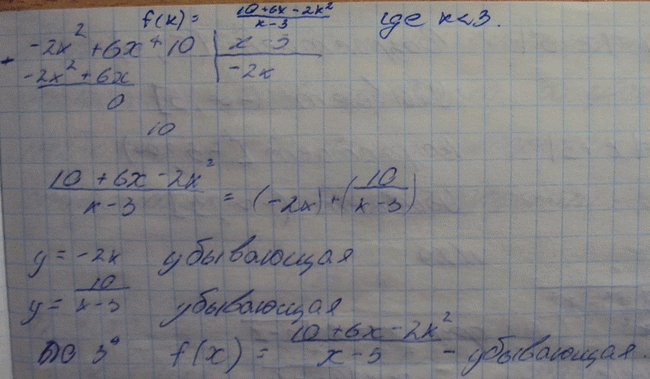 f(x) = (10+6x-2x²)/(x-3) где x<3.
-2x² + 6x + 10 | x-3
-2x² + 6x | -2x
0
10
(10 + 6x - 2x²)/(x-3) = (-2x) + (10/(x-3))
y = -2x убывающая
y = 10/(x-3) убывающая
по 3° f(x) = (10+6x-2x²)/(x-3) - убывающая.